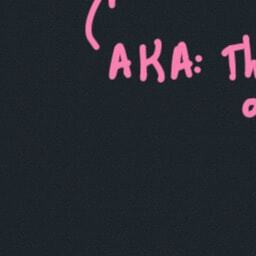 AKA: Th